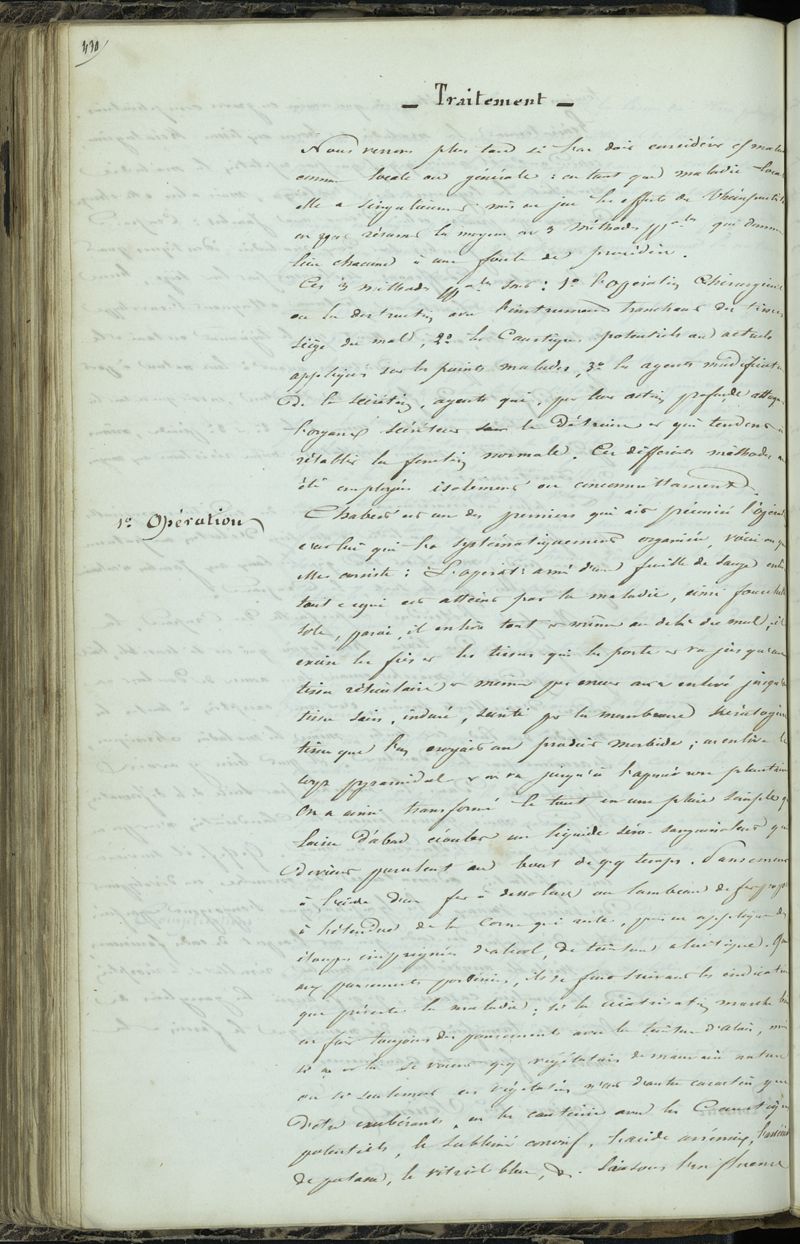 430
— Traitement —
Nous verrons plus tard si l'on doit considérer cette maladie
comme locale ou générale : en tant que maladie locale
elle a singulièrement mis en jeu les efforts de
on peut résumer les moyens en 3 méthodes ppales qui donnent
lieu chacune à une foule de procédés.
Ces 3 méthodes ppales sont : 1o l'opération chirurgicale
ou la destruction avec l'instrument tranchant des tissus
siège du mal, 2o les Caustiques potentiels ou actuels
appliqués sur les points malades, 3o les agents modificateurs
de la sécrétion, agents qui, par leur action profonde
l'organe sécréteur sans le détruire et qui tendent à
rétablir la fonction normale. Ces différentes méthodes ont
été employées isolément ou concomittamment.
1o Opération
Chabert est un des premiers qui ait préconisé l'opération
c'est lui qui l'a systématiquement organisée, voici en quoi
elle consiste : L'opérat: armé d'une feuille de sauge enlève
tout ce qui est atteint par la maladie, ainsi fourchette
sole, paroi, il enlève tout et même au delà du mal, il
excise les fics et les tissus qui les porte et va jusqu'au
tissu réticulaire et même par erreur on a enlevé jusqu'au
tissu sain, induré, sécrété par la membrane kératogène
tissu que l'on croyait un produit morbide ; on enlève le
corps pyramidal et on va jusqu'à l'aponévrose plantaire
On a ainsi transformé le tout en une plaie simple qui
laisse d'abord écouler un liquide séro-sanguinolent qui
devient purulent au bout de qq temps. Pansement
à l'aide d'un fer à dessolure ou lambeau de fer
à l'étendue de la corne qui reste, puis on applique des
étoupes imprégnées d'alcool, de teinture aloétique. Quant
aux pansements postérieurs, ils se font suivant les indications
que présente la maladie ; si la cicatrisation marche bien
on fait toujours des pansements avec la teinture d'aloès, mais
si on a vu se voir qq végétations de mauvaise nature
ou si seulement ces végétations n'ont d'autre caractère que
d'être exubérantes, on les cautérise avec les Caustiques
potentiels, le sublimé corrosif, l'acide arsénieux,
de potasse, le vitriol bleu, &. l'influence